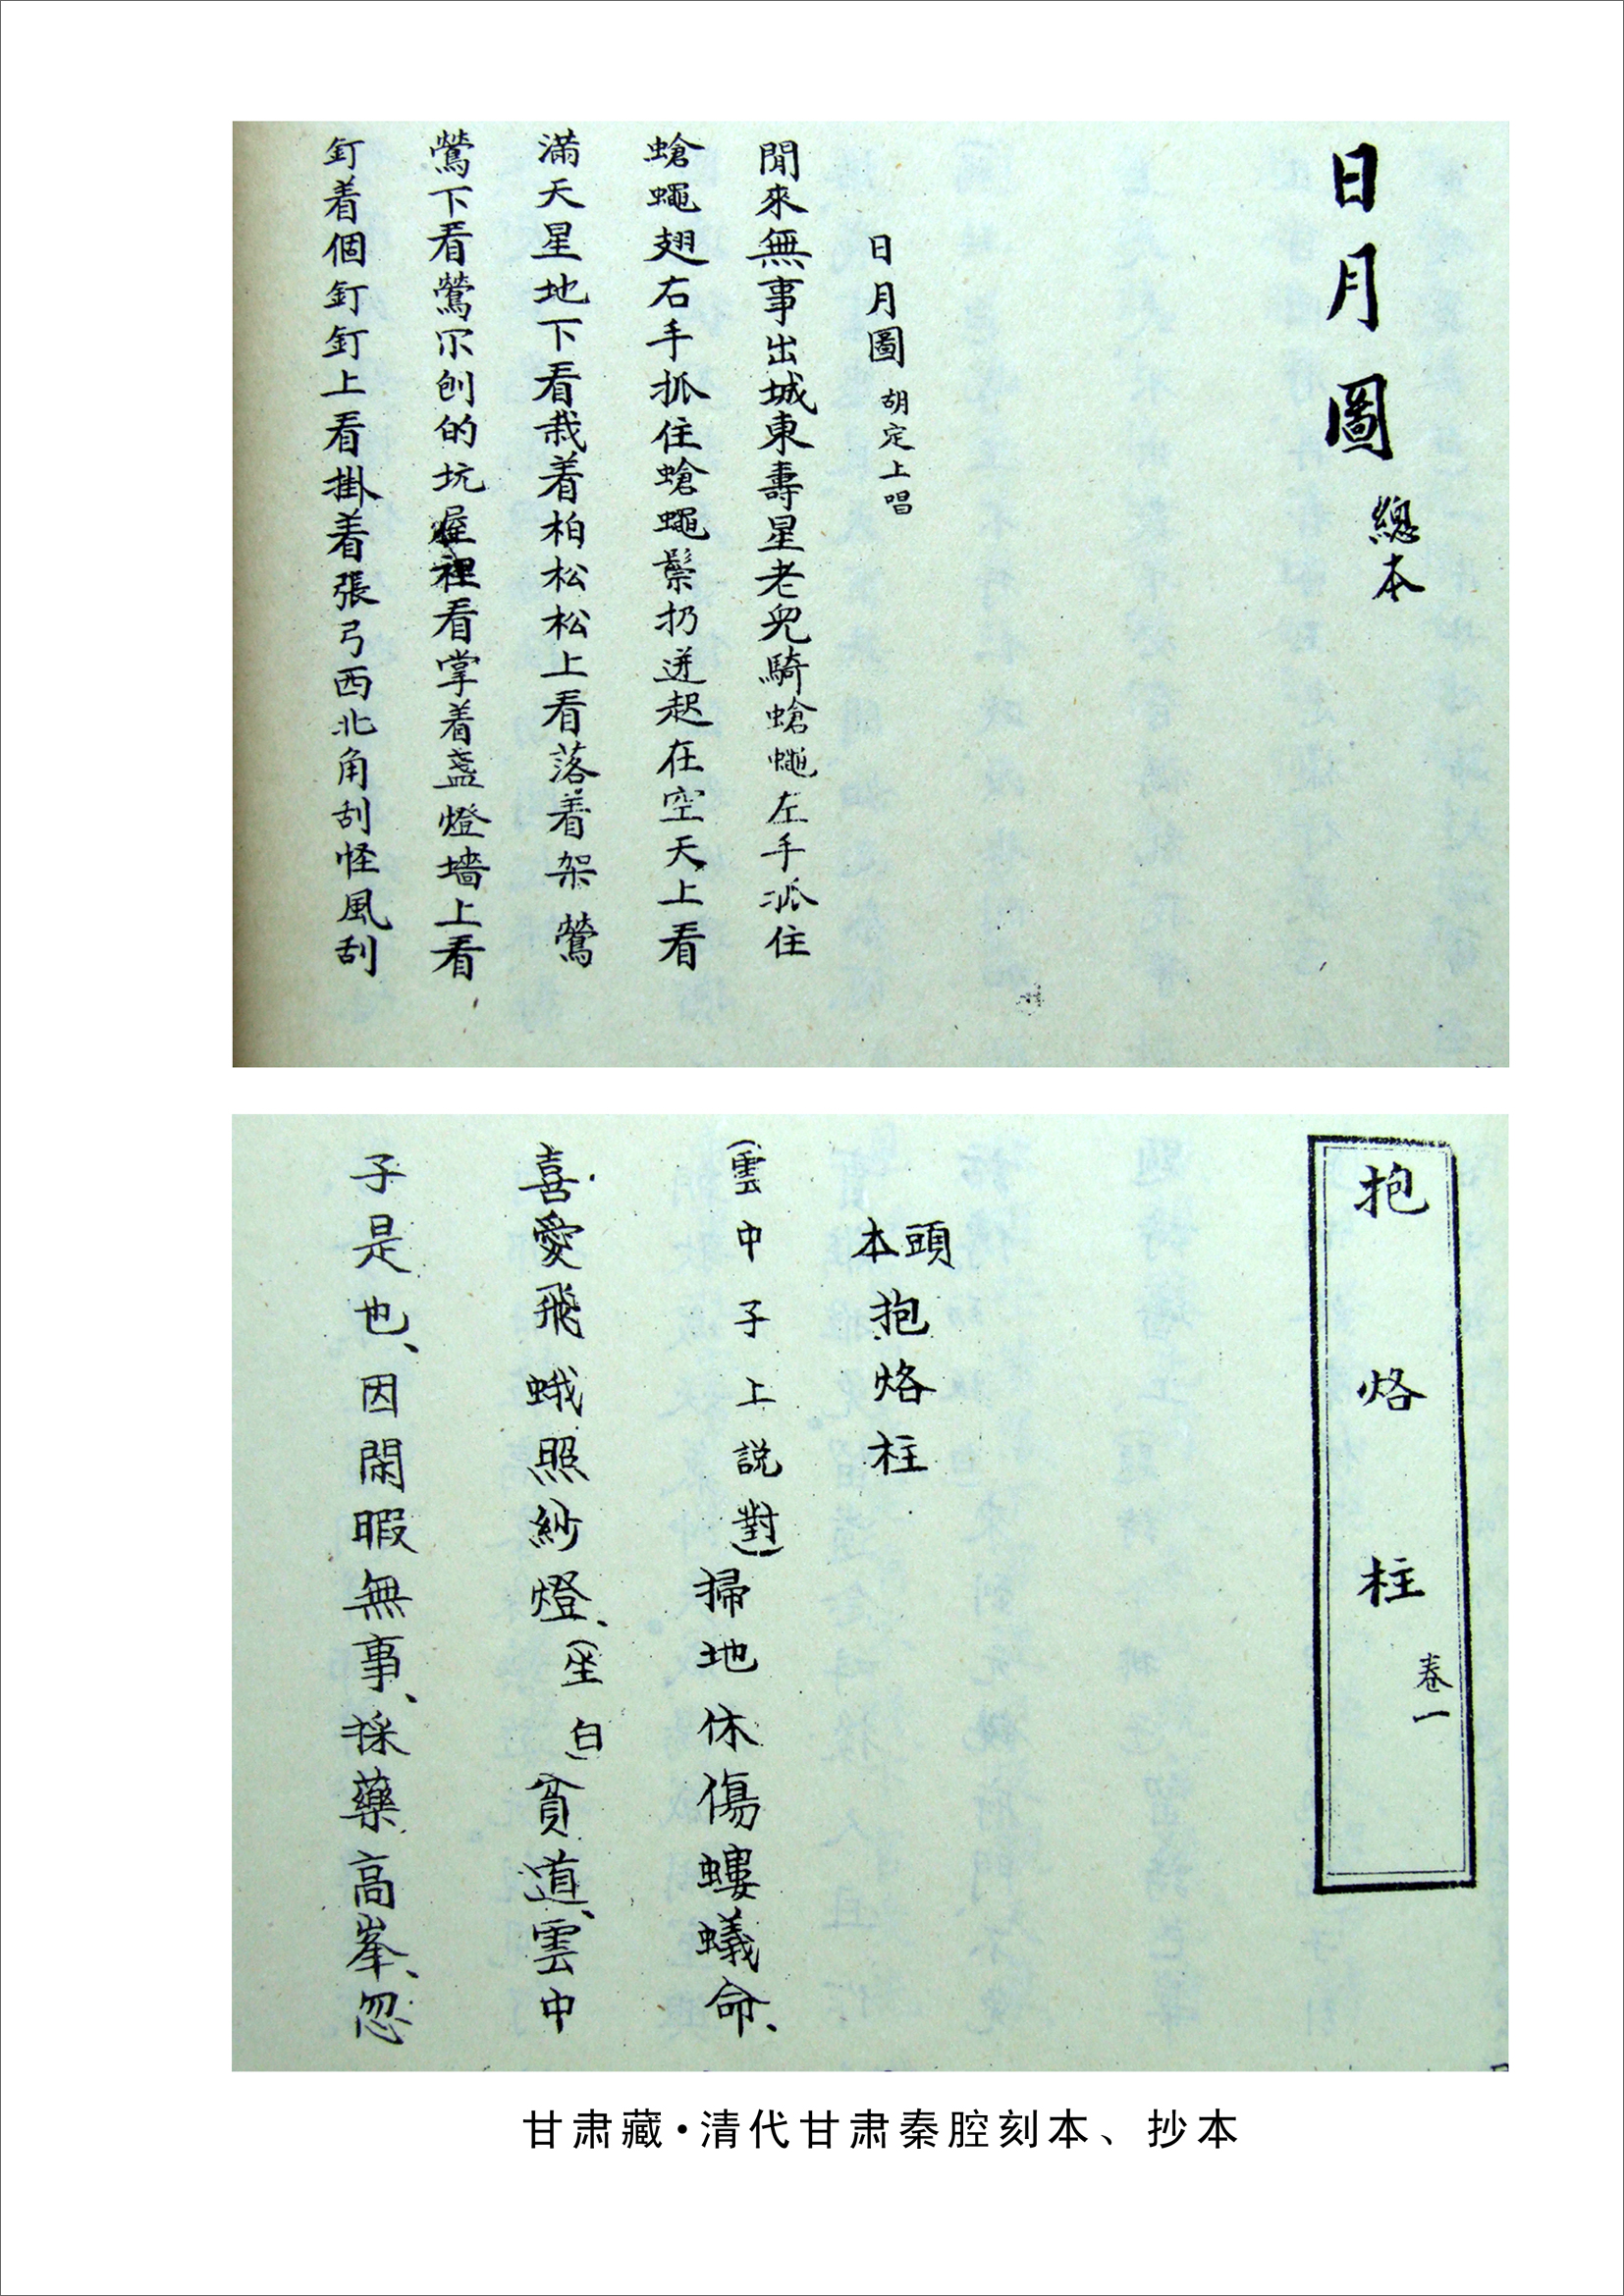 日月圖 總本
日月圖 胡定上唱
閒來無事出城東壽星老兒騎螥蠅左手派住
螥蠅翅右手抓住螥蠅鬃扔迸起在空天上看
滿天星地下看栽着柏松松上看落着架鶯
鶯下看鶯尿刨的坑屋裡看掌着盞燈墻上看
釘着個釘釘上看掛着張弓西北角刮怪風刮
抱烙柱 卷一
頭本 抱烙柱
（雲中子上説對）掃地休傷螻蟻命、
喜愛飛蛾照紗燈、（坐白）貧道、雲中
子是也、因閑暇無事、採藥高峯、忽
甘肃藏·清代甘肃秦腔刻本、抄本